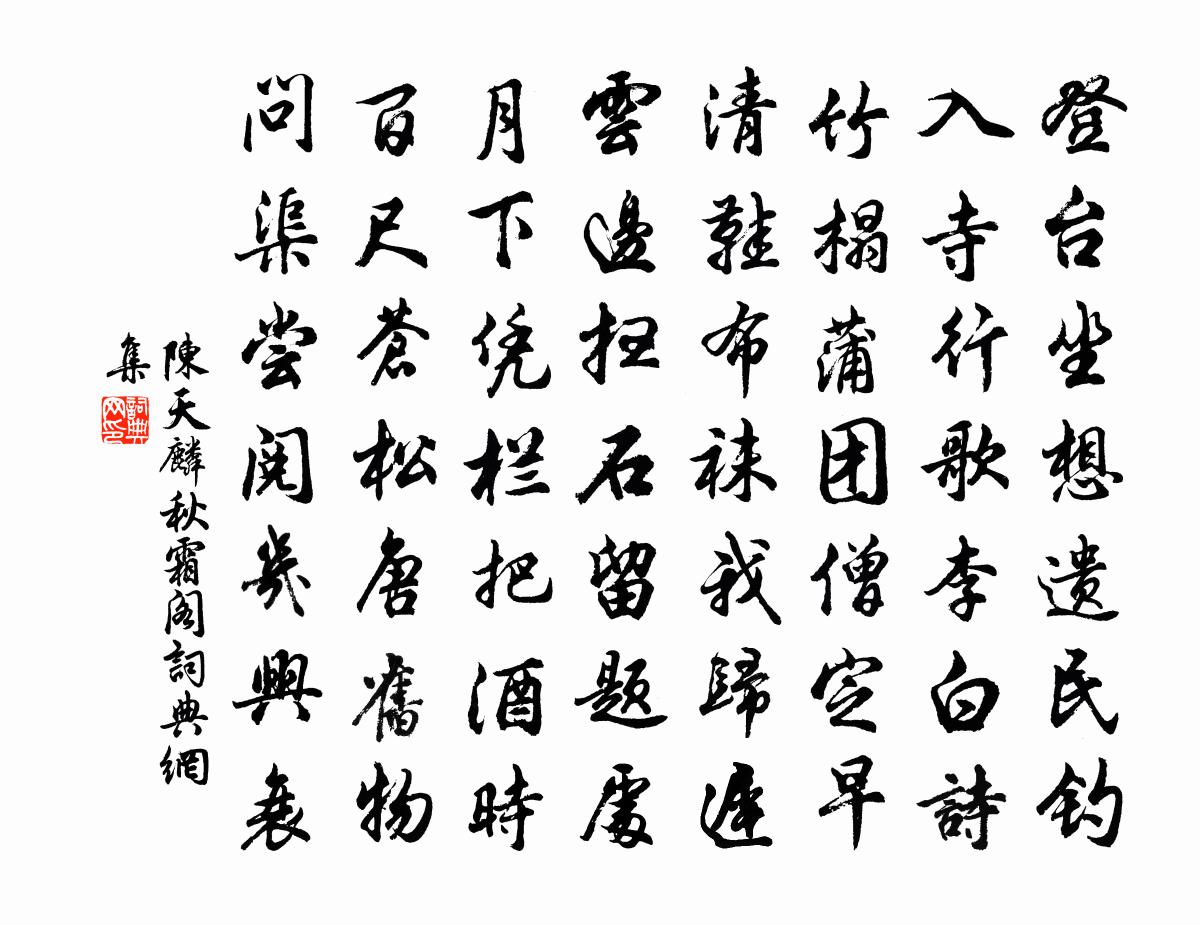 登台坐想遗民钓
入寺行歌李白詩
竹榻蒲团僧定早
清鞋布袜我歸遲
雲邊扫石留题處
月下凭栏把酒時
百尺蒼松唐舊物
问渠尝阅幾興衰
陳天麟秋霜阁詞典網
集
詞典网印